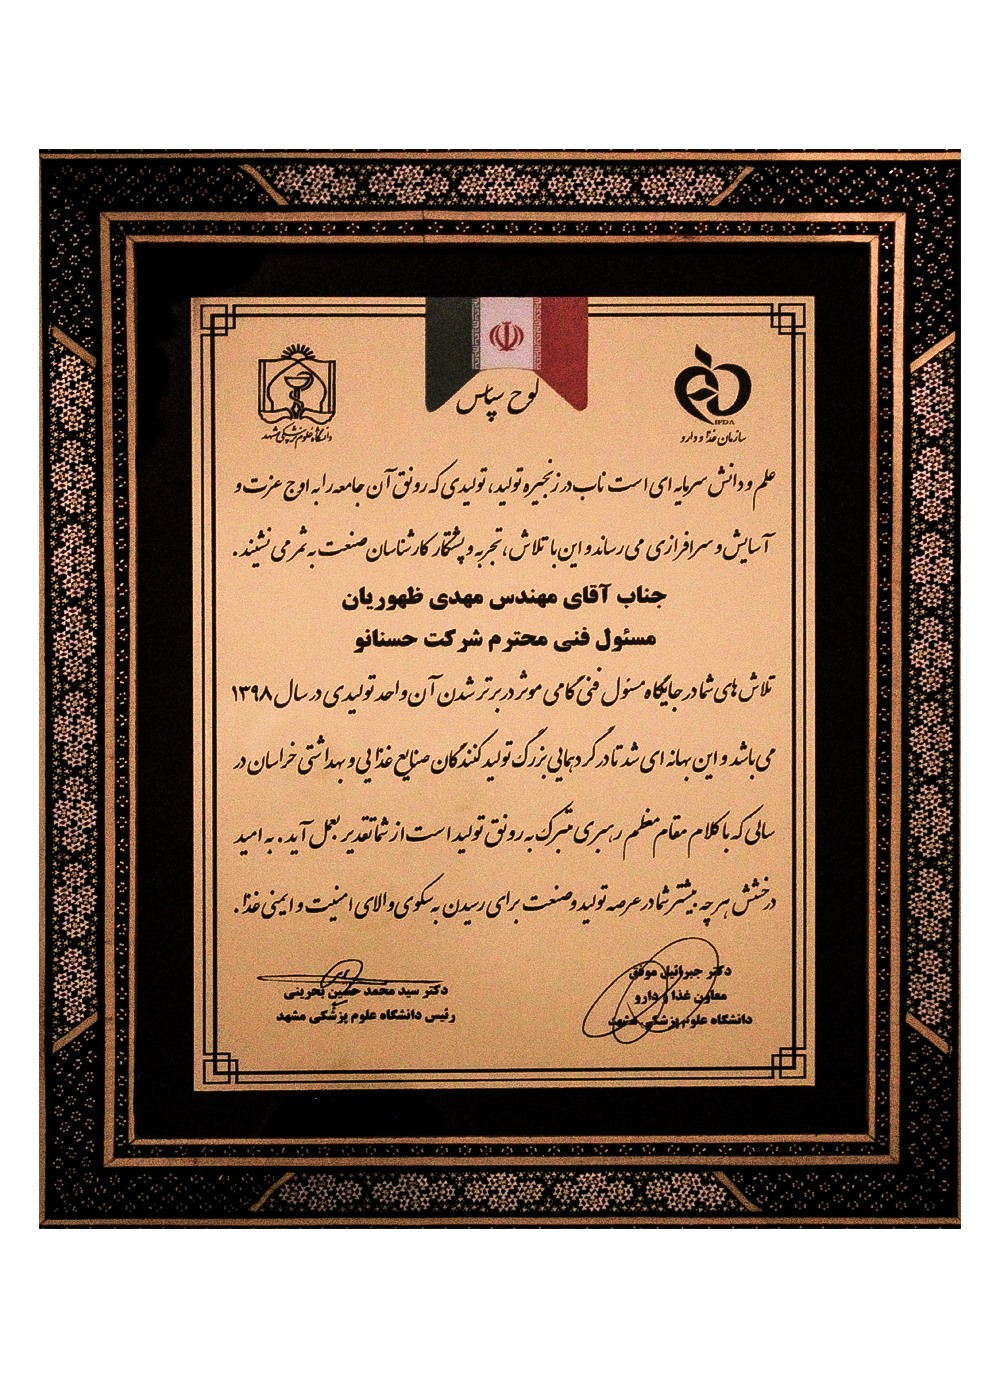 لوح سپاس
دانشگاه علوم پزشکی مشهد
IFDA
سازمان غذا و دارو
علم و دانش سرمایه ای است ناب در زنجیره تولید، تولیدی که رونق آن جامعه را به اوج عزت و
آسایش و سرافرازی می رساند و این با تلاش، تجربه و پشتکار کارشناسان صنعت به ثمر می نشیند.
جناب آقای مهندس مهدی ظهوریان
مسئول فنی محترم شرکت حسنانو
تلاش های شما در جایگاه مسئول فنی گامی موثر در برتر شدن آن واحد تولیدی در سال ۱۳۹۸
می باشد و این بهانه ای شد تا در گردهمایی بزرگ تولید کنندگان صنایع غذایی و بهداشتی خراسان در
سالی که با کلام مقام معظم رهبری متبرک به رونق تولید است از شما تقدیر بعمل آید. به امید
درخشش هر چه بیشتر شما در عرصه تولید و صنعت برای رسیدن به سکوی والای امنیت و ایمنی غذا.
دکتر جبرائیل موفق
معاون غذا و دارو
دانشگاه علوم پزشکی مشهد
دکتر سید محمد حسین بحرینی
رئیس دانشگاه علوم پزشکی مشهد